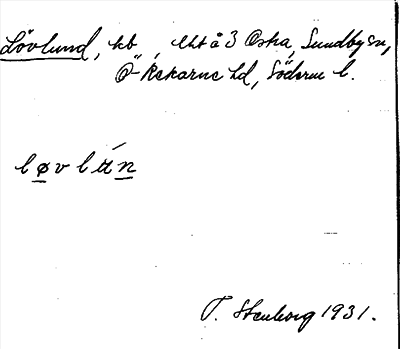 Lövlund, kb, Ekt å 3 Ostra, Sundby sn,
Ö-Rekarne hd, Söderm l.
løvlu̇n
T. Stenborg 1931.